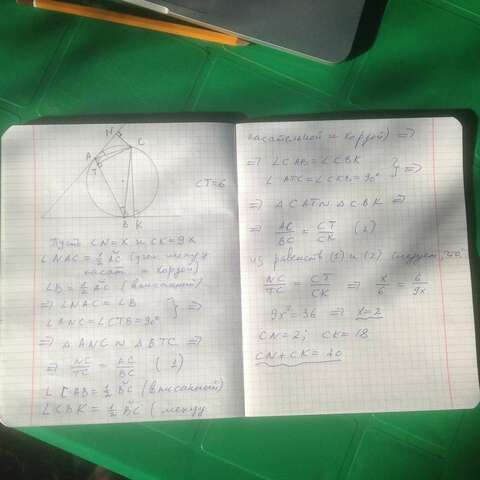 N
C
A
T
CT=6
B K
Пусть CN=x и CK=9x
∠NAC = ½ AC (угол между
касат. и хордой)
∠B = ½ AC (вписанный)
⇒ ∠NAC = ∠B
∠ANC = ∠CTB = 90° } ⇒
⇒ △ANC ∾ △BTC ⇒
⇒ NC/TC = AC/BC (1)
∠CAB = ½ BC (вписанный)
∠CBK = ½ BC (между
касательной и хордой) ⇒
⇒ ∠CAB = ∠CBK
∠ATC = ∠CKB = 90° } ⇒
⇒ △CAT ∾ △CBK ⇒
⇒ AC/BC = CT/CK (2)
из равенств (1) и (2) следует, что:
NC/TC = CT/CK ⇒ x/6 = 6/9x
9x² = 36 ⇒ x=2
CN=2; CK=18
CN+CK=20